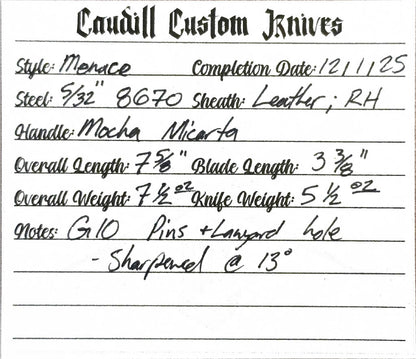 Caudill Custom Knives
Style: Menace Completion Date: 12/1/25
Steel: 5/32" 8670 Sheath: Leather; RH
Handle: Mocha Micarta
Overall Length: 7 5/8" Blade Length: 3 3/8"
Overall Weight: 7 1/2 oz Knife Weight: 5 1/2 oz
Notes: G10 Pins + Lanyard hole
- Sharpened @ 13°